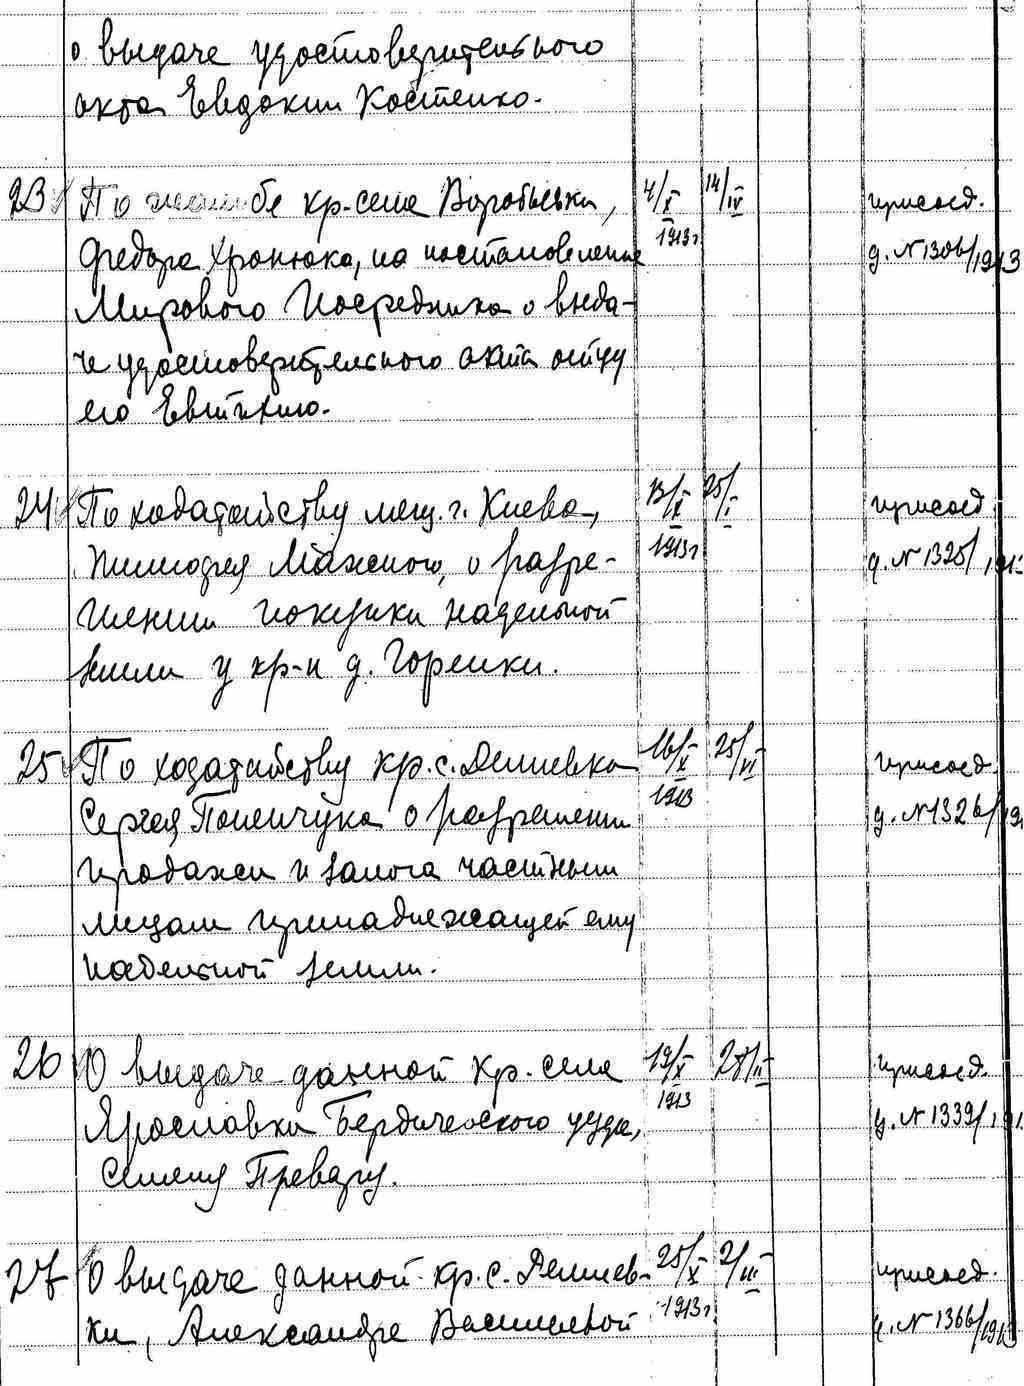 о выдаче удостоверительного
акта Евдокии Костенко.
23 По жалобе кр. села Воробьевки, 4/X 1913г 14/IV присоед. д. N 1306/1913
Федора Хронюка, на постановление
Мирового Посредника о выда-
че удостоверительного акта отцу
его Евтихию.
24 По ходатайству мещ. г. Киева, 13/X 1913г 25/I присоед. д. N 1325/191
Мажного, о разре-
шении покупки надельной
земли у кр-н д. Горенки.
25 По ходатайству кр. с. Демиевка 16/X 1913 25/VI присоед. д. N 1326/19
Сергея Поленчука о разрешении
продажи и залога частным
лицам принадлежащей ему
надельной земли.
26 О выдаче данной кр. села 19/X 1913 28/II присоед. д. N 1339/191
Ярославки Бердичевского уезда,
Семену Превару.
27 О выдаче данной кр. с. Демиев- 25/X 1913г 2/III присоед. д. N 1366/191
ки, Александре Васильевой